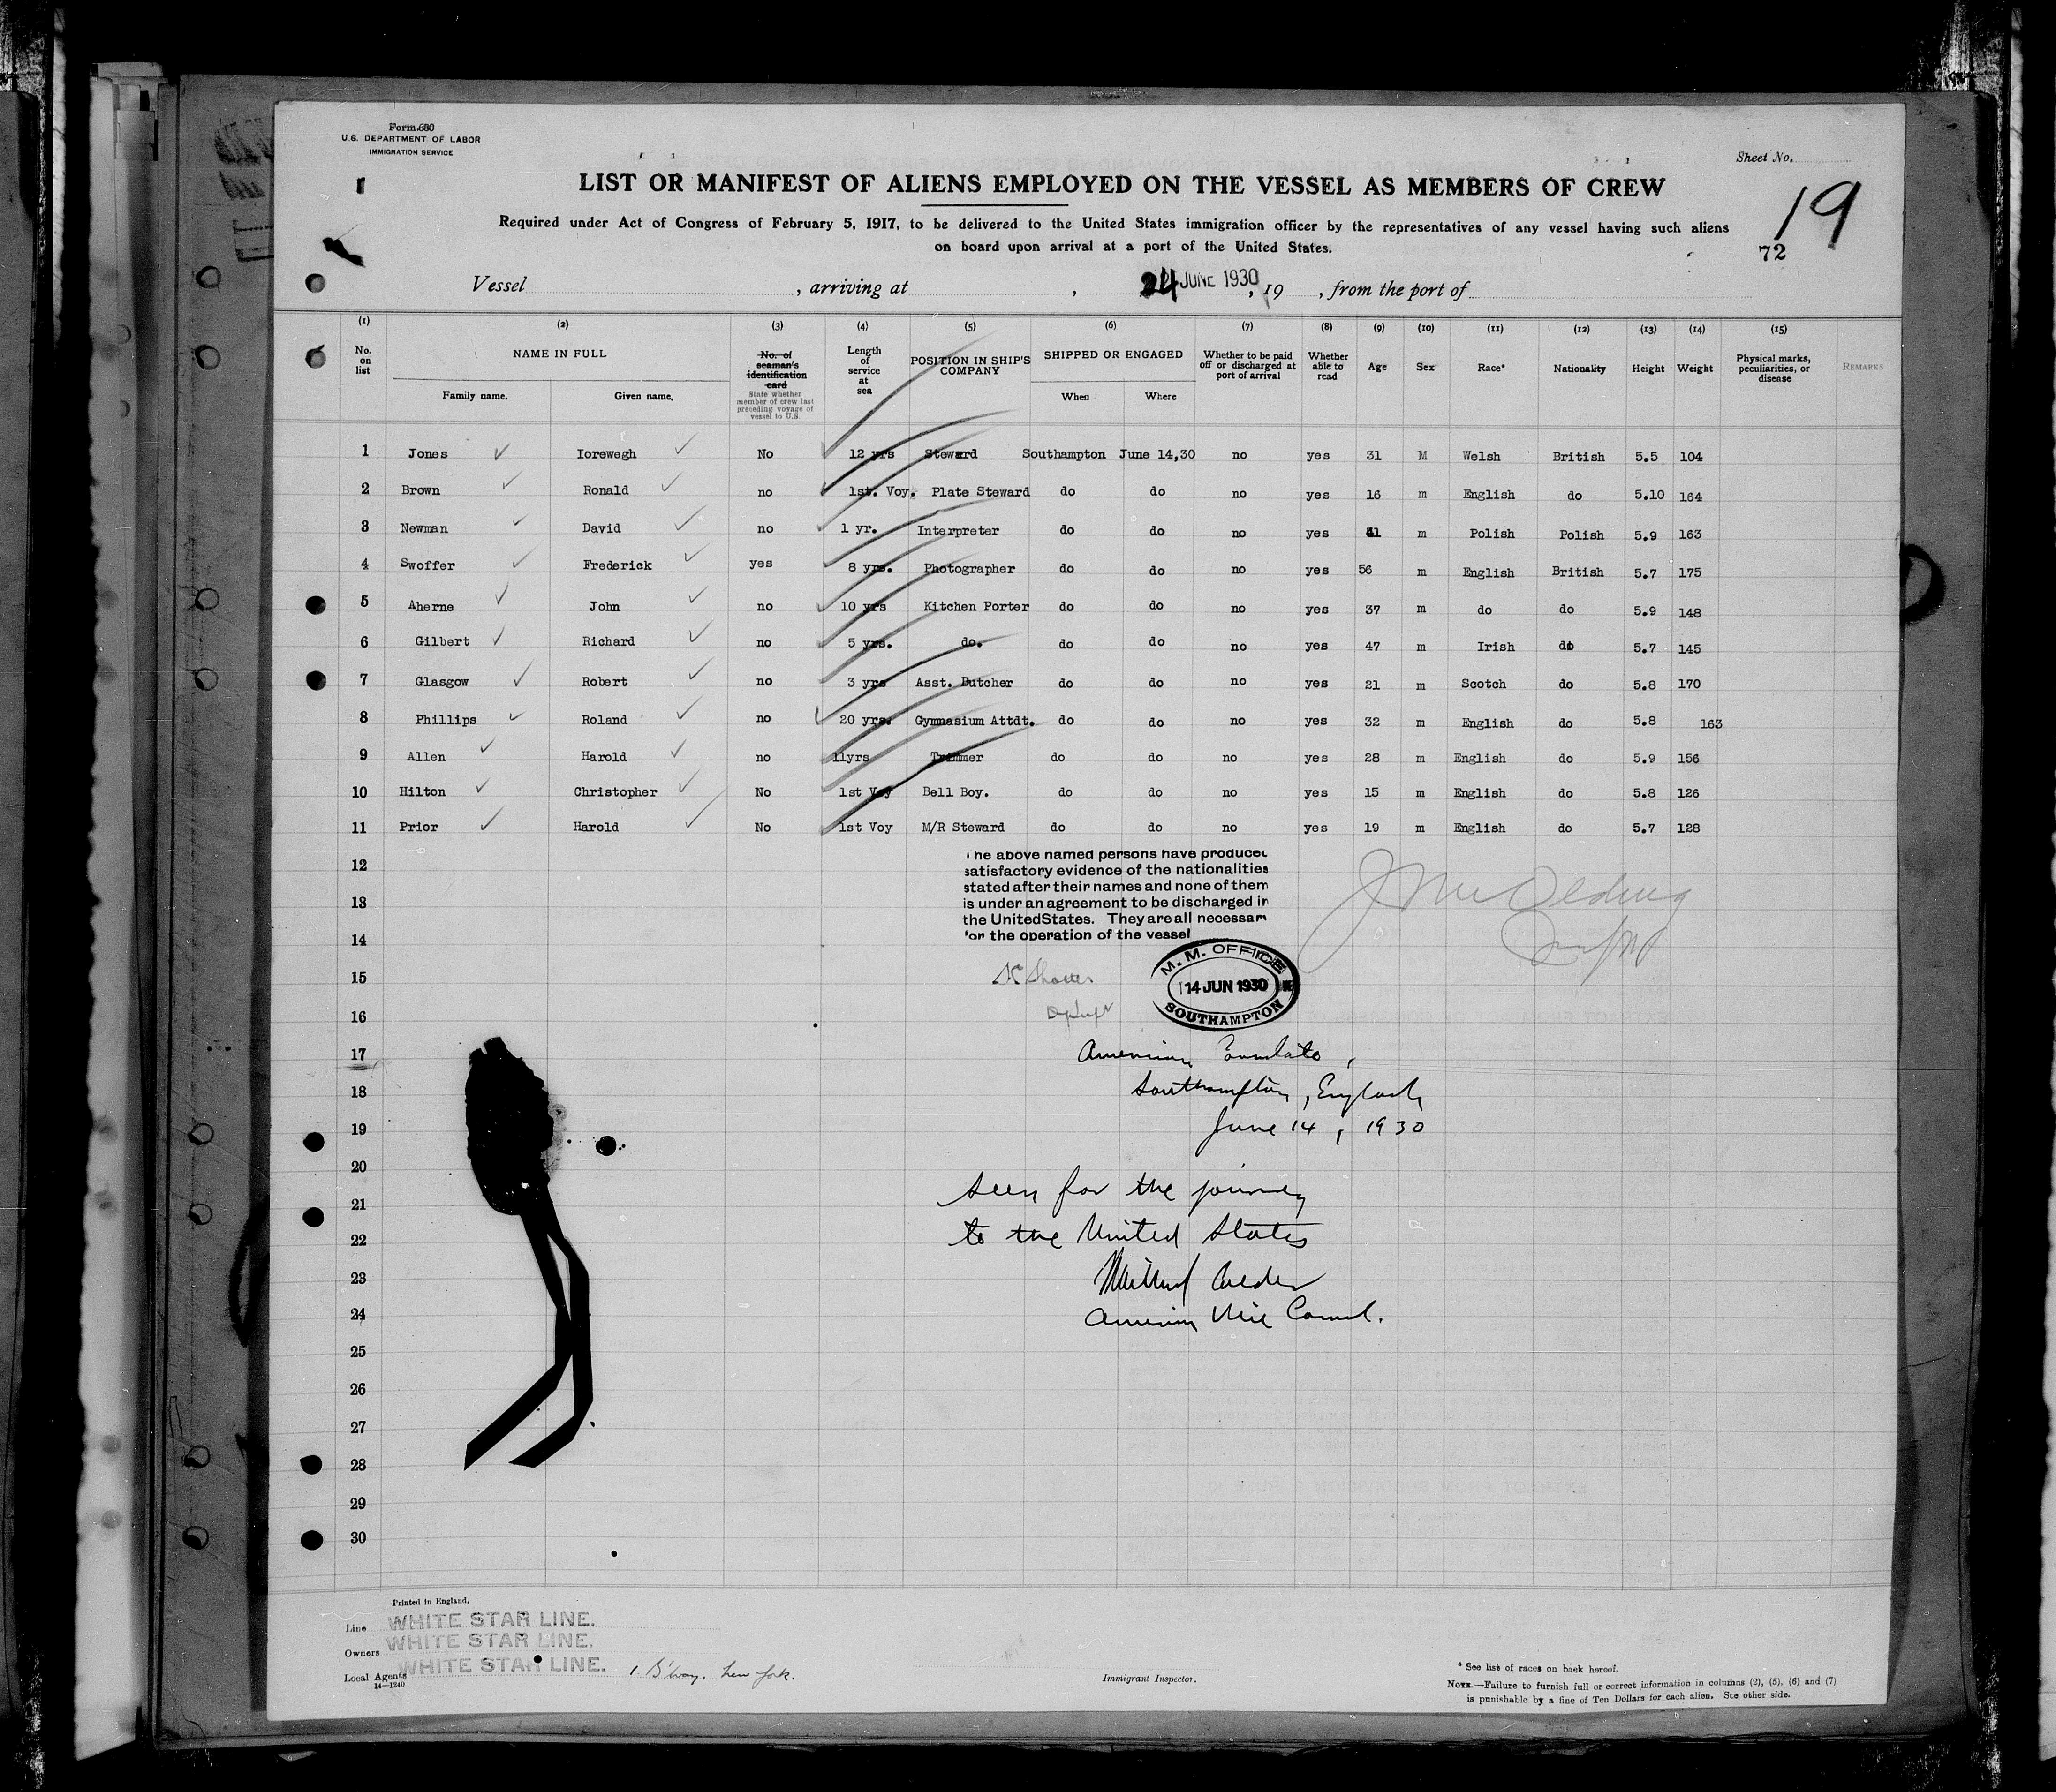 Form 680
U.S. DEPARTMENT OF LABOR
IMMIGRATION SERVICE
Sheet No.
LIST OR MANIFEST OF ALIENS EMPLOYED ON THE VESSEL AS MEMBERS OF CREW
19
Required under Act of Congress of February 5, 1917, to be delivered to the United States immigration officer by the representatives of any vessel having such aliens
on board upon arrival at a port of the United States.
72
Vessel , arriving at , 24 JUNE 1930 , 19 , from the port of
(1) (2) (3) (4) (5) (6) (7) (8) (9) (10) (11) (12) (13) (14) (15)
No. on list NAME IN FULL Family name. Given name. No. of seaman's identification card State whether member of crew last preceding voyage of vessel to U.S. Length of service at sea POSITION IN SHIP'S COMPANY SHIPPED OR ENGAGED When Where Whether to be paid off or discharged at port of arrival Whether able to read Age Sex Race* Nationality Height Weight Physical marks, peculiarities, or disease REMARKS
1 Jones Iorewegh No 12 yrs Steward Southampton June 14,30 no yes 31 M Welsh British 5.5 104
2 Brown Ronald no 1st. Voy. Plate Steward do do no yes 16 m English do 5.10 164
3 Newman David no 1 yr. Interpreter do do no yes 41 m Polish Polish 5.9 163
4 Swoffer Frederick yes 8 yrs. Photographer do do no yes 56 m English British 5.7 175
5 Aherne John no 10 yrs Kitchen Porter do do no yes 37 m do do 5.9 148
6 Gilbert Richard no 5 yrs. do. do do no yes 47 m Irish do 5.7 145
7 Glasgow Robert no 3 yrs Asst. Butcher do do no yes 21 m Scotch do 5.8 170
8 Phillips Roland no 20 yrs. Gymnasium Attdt. do do no yes 32 m English do 5.8 163
9 Allen Harold no 11yrs Trimmer do do no yes 28 m English do 5.9 156
10 Hilton Christopher No 1st Voy Bell Boy. do do no yes 15 m English do 5.8 126
11 Prior Harold No 1st Voy M/R Steward do do no yes 19 m English do 5.7 128
12
13
14
15
16
17
18
19
20
21
22
23
24
25
26
27
28
29
30
The above named persons have produced
satisfactory evidence of the nationalities
stated after their names and none of them
is under an agreement to be discharged in
the United States. They are all necessary
for the operation of the vessel
M. M. OFFICE
14 JUN 1930
SOUTHAMPTON
American Consulate,
Southampton, England
June 14, 1930
Seen for the journey
to the United States
American Vice Consul.
Printed in England.
Line WHITE STAR LINE.
Owners WHITE STAR LINE.
Local Agents WHITE STAR LINE. 1 B'way. New York.
14—1240
Immigrant Inspector.
* See list of races on back hereof.
NOTE.—Failure to furnish full or correct information in columns (2), (5), (6) and (7)
is punishable by a fine of Ten Dollars for each alien. See other side.